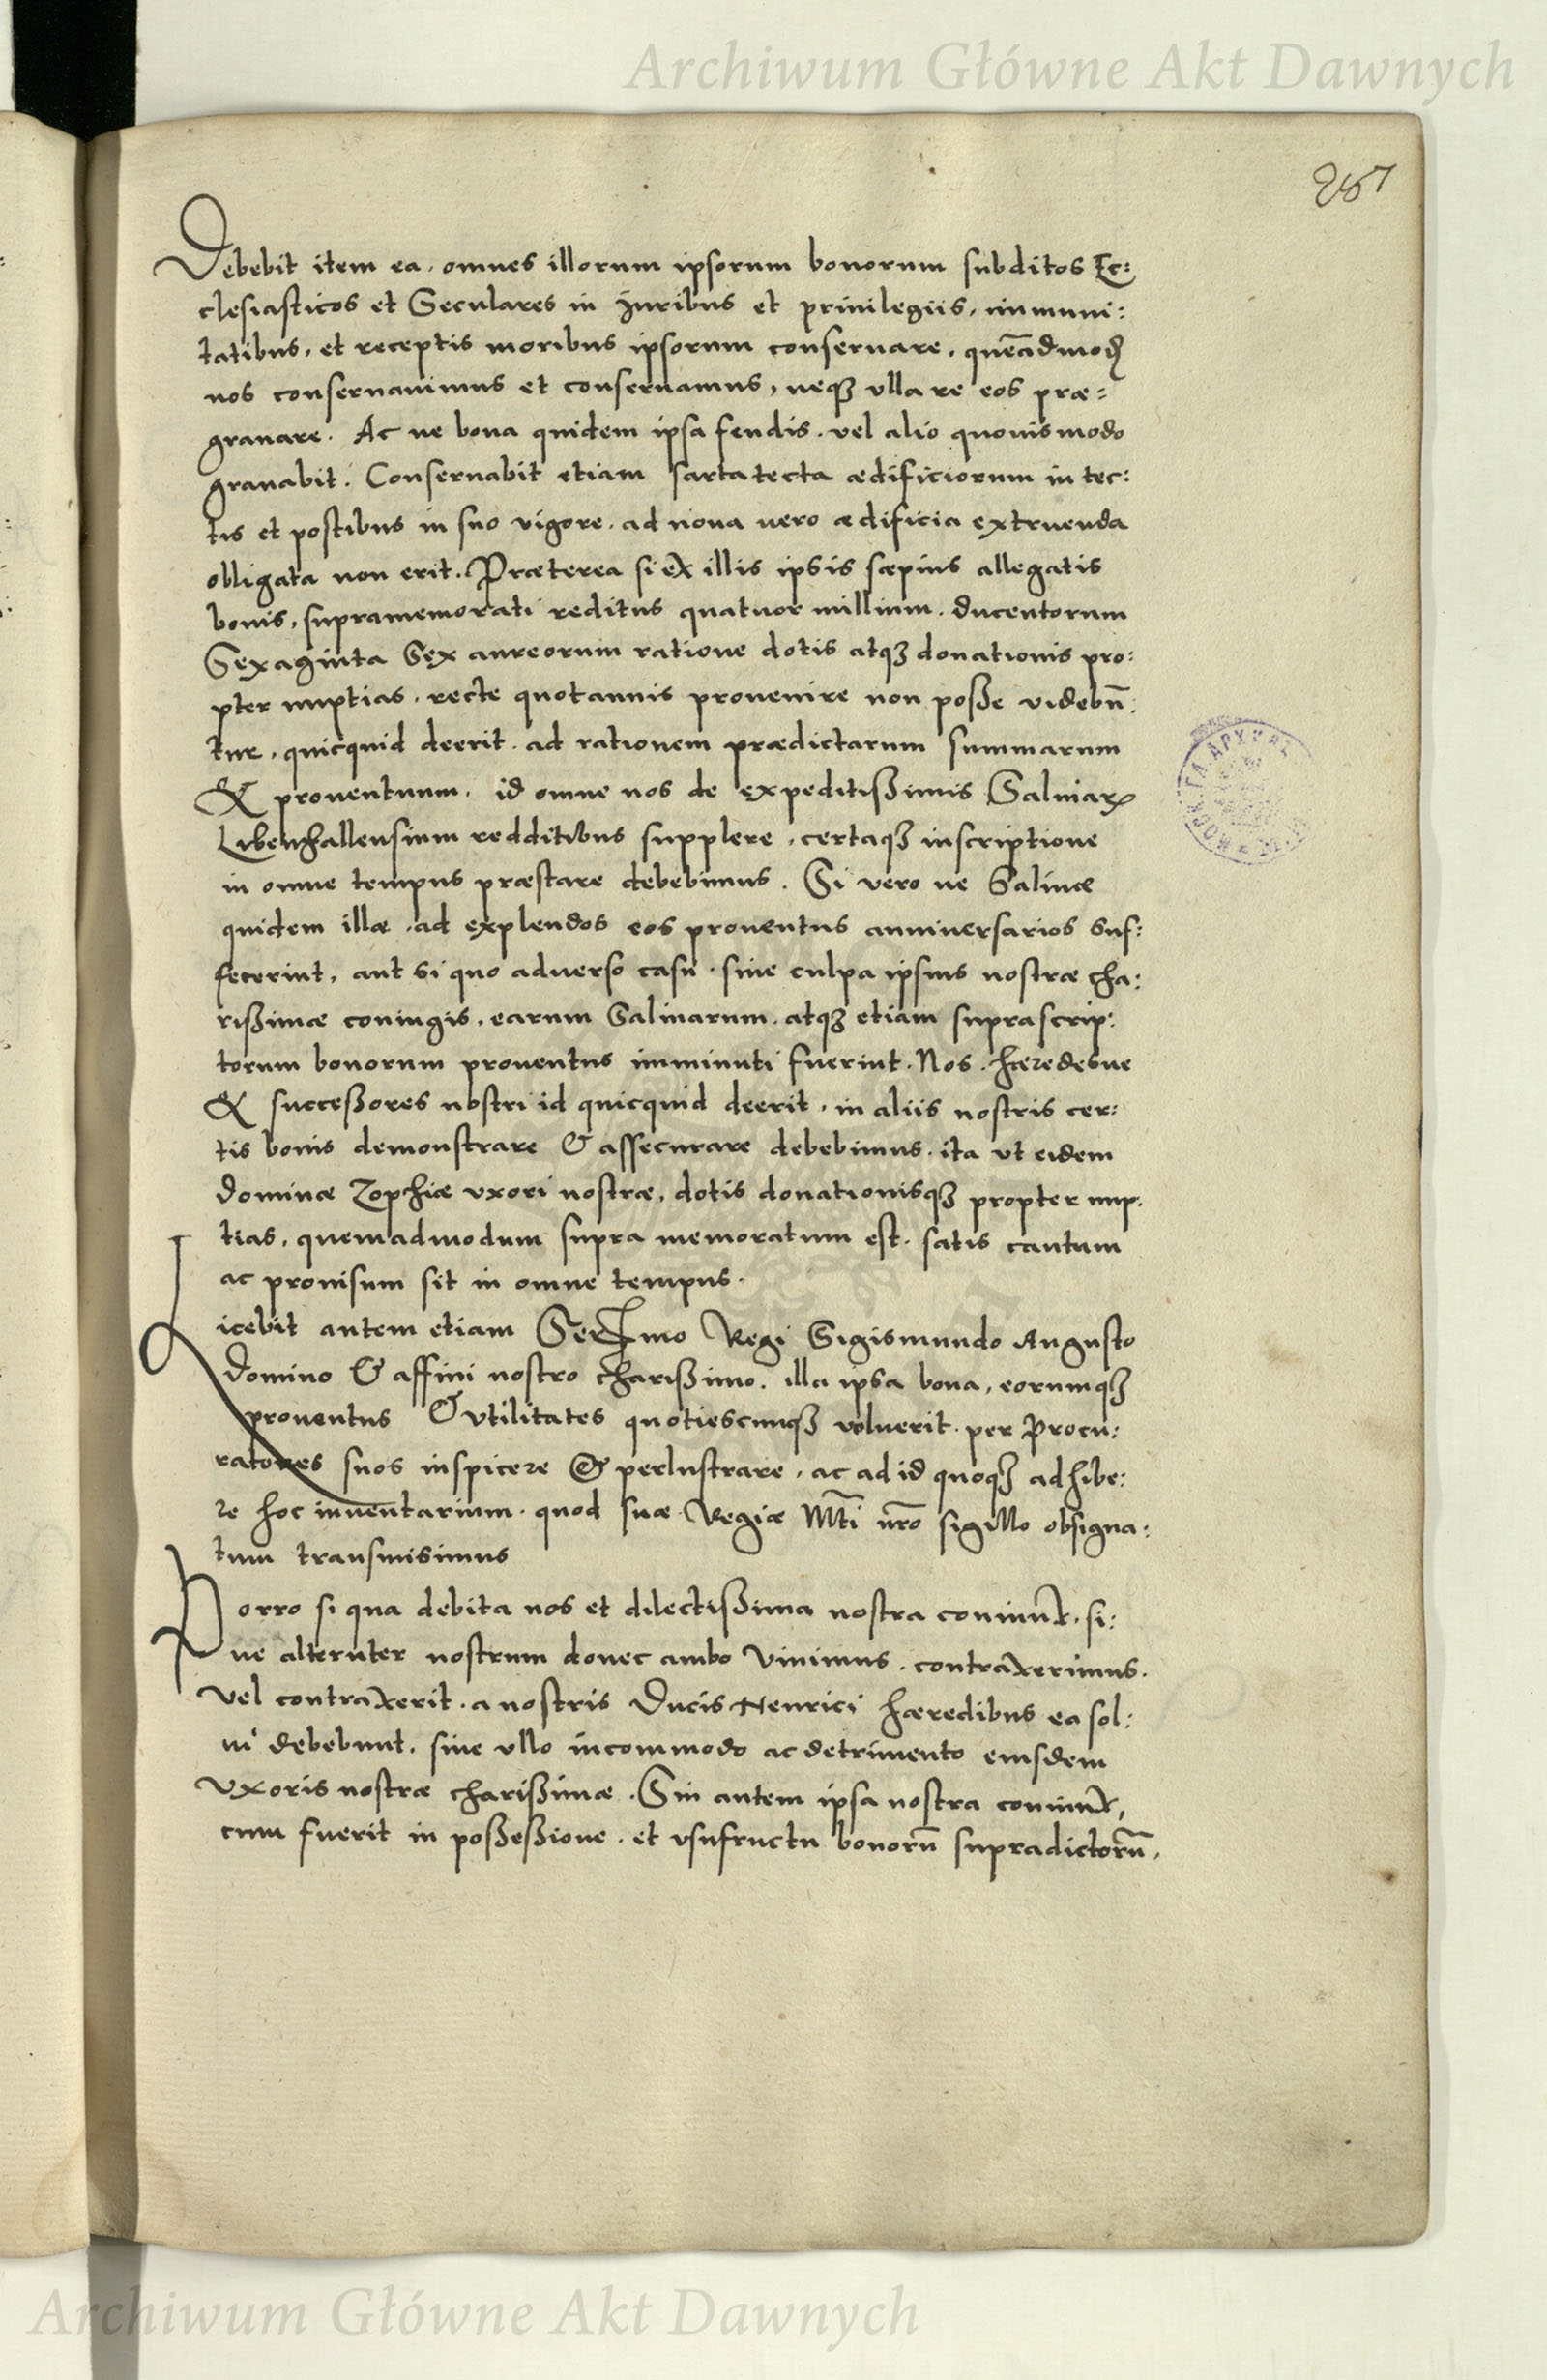 Archiwum Główne Akt Dawnych
257
Debebit item ea, omnes illorum ipsorum bonorum subditos Ec:
clesiasticos et Seculares in Juribus et priuilegiis, immuni:
tatibus, et receptis moribus ipsorum conseruare, queādmodū
nos conseruauimus et conseruamus, neqꝫ vlla re eos præ:
grauare. Ac ne bona quidem ipsa feudis, vel alio quouismodo
grauabit. Conseruabit etiam sarta tecta ædificiorum in tec:
tis et postibus in suo vigore, ad noua uero ædificia extruenda
obligata non erit. Præterea si ex illis ipsis sæpius allegatis
bonis, supramemorati reditus quatuor millium, ducentorum
Sexaginta Sex aureorum ratione dotis atqꝫ donationis pro:
pter nuptias, recte quotannis prouenire non posse videbūn:
tur, quicquid deerit, ad rationem prædictarum summarum
& prouentuum, id omne nos de expeditißimis Salinarꝝ
Libenhallensium redditibus supplere, certaqꝫ inscriptione
in omne tempus præstare debebimus. Si vero ne Salinæ
quidem illæ, ad explendos eos prouentus anniuersarios suf:
fecerint, aut si quo aduerso casu, siue culpa ipsius nostræ cha:
rißimæ coniugis, earum Salinarum, atqꝫ etiam suprascrip:
torum bonorum prouentus imminuti fuerint. Nos, hæredesue
& successores nostri id quicquid deerit, in aliis nostris cer:
tis bonis demonstrare & assecurare debebimus, ita vt eidem
dominæ Zophiæ vxori nostræ, dotis donationisqꝫ propter nup:
tias, quemadmodum supra memoratum est, satis cautum
ac prouisum sit in omne tempus.
Licebit autem etiam Serᵐᵒ Regi Sigismundo Augusto
domino & affini nostro charißimo, illa ipsa bona, eorumqꝫ
prouentus & vtilitates quotiescunqꝫ voluerit, per Procu:
ratores suos inspicere & perlustrare, ac ad id quoqꝫ adhibe:
re hoc inuentarium, quod suæ Regiæ Mti nr̄o sigillo obsigna:
tum transmisimus
Porro si qua debita nos et dilectißima nostra coniunx, si:
ue alteruter nostrum donec ambo viuimus, contraxerimus,
vel contraxerit, a nostris Ducis Henrici hæredibus ea sol:
ui debebunt, sine vllo incommodo ac detrimento eiusdem
vxoris nostræ charißimæ. Sin autem ipsa nostra coniunx,
cum fuerit in poßeßione, et vsufructu bonorū supradictorū,
Archiwum Główne Akt Dawnych